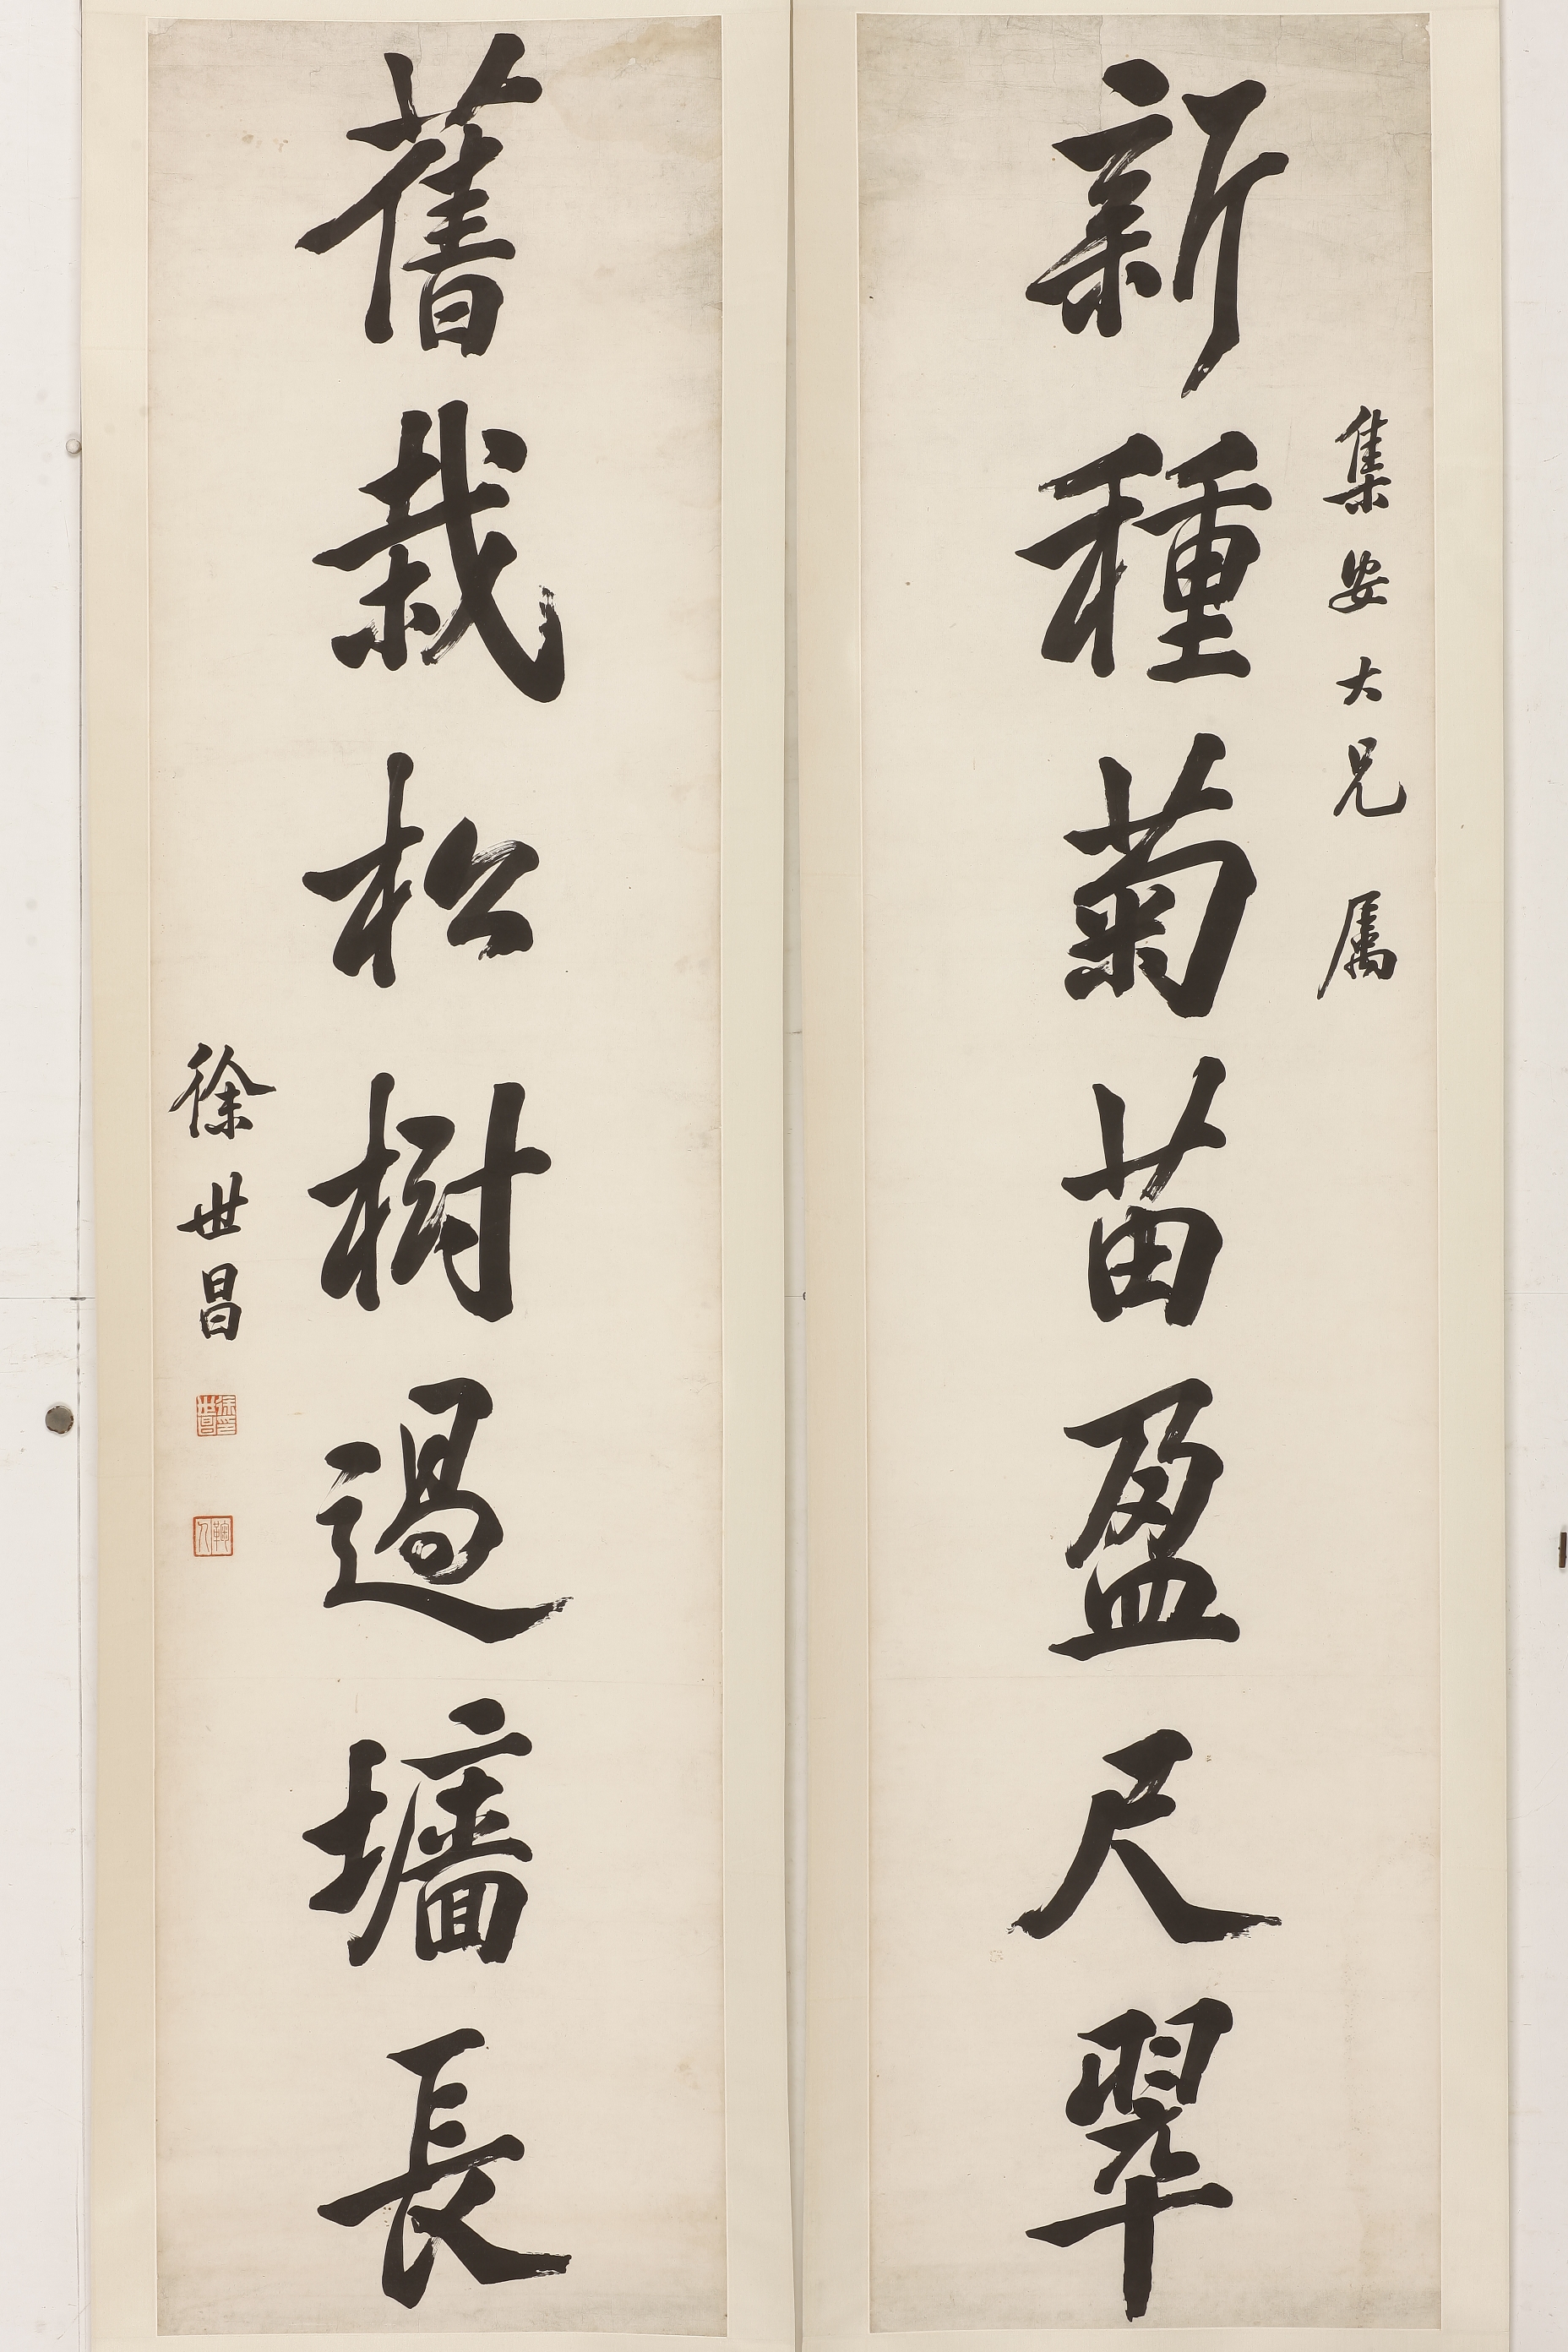 集安大兄属
新種菊苗盈尺翠
舊栽松樹過墻長
徐世昌
徐世昌印
鞠人